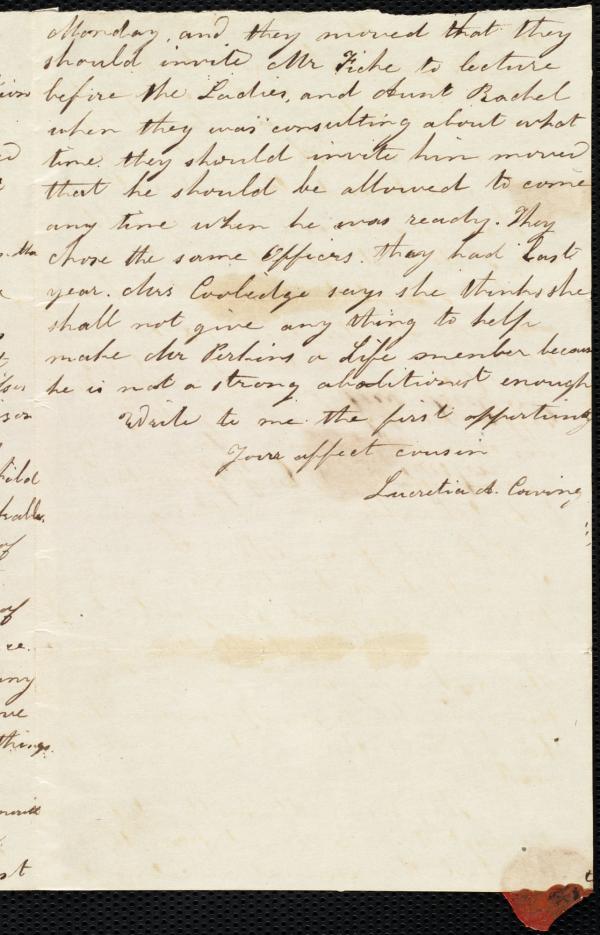 Monday, and they moved that they
should invite Mr Fiske to lecture
before the Ladies, and Aunt Rachel
when they was consulting about what
time they should invite him moved
that he should be allowed to come
any time when he was ready. They
chose the same Officers. they had last
year. Mrs Cooledge says she thinks she
shall not give any thing to help
make Mr Perkins a Life member because
he is not a strong abolitionist enough
Write to me the first opportunity
Yours affect cousin
Lucretia A. Cowing